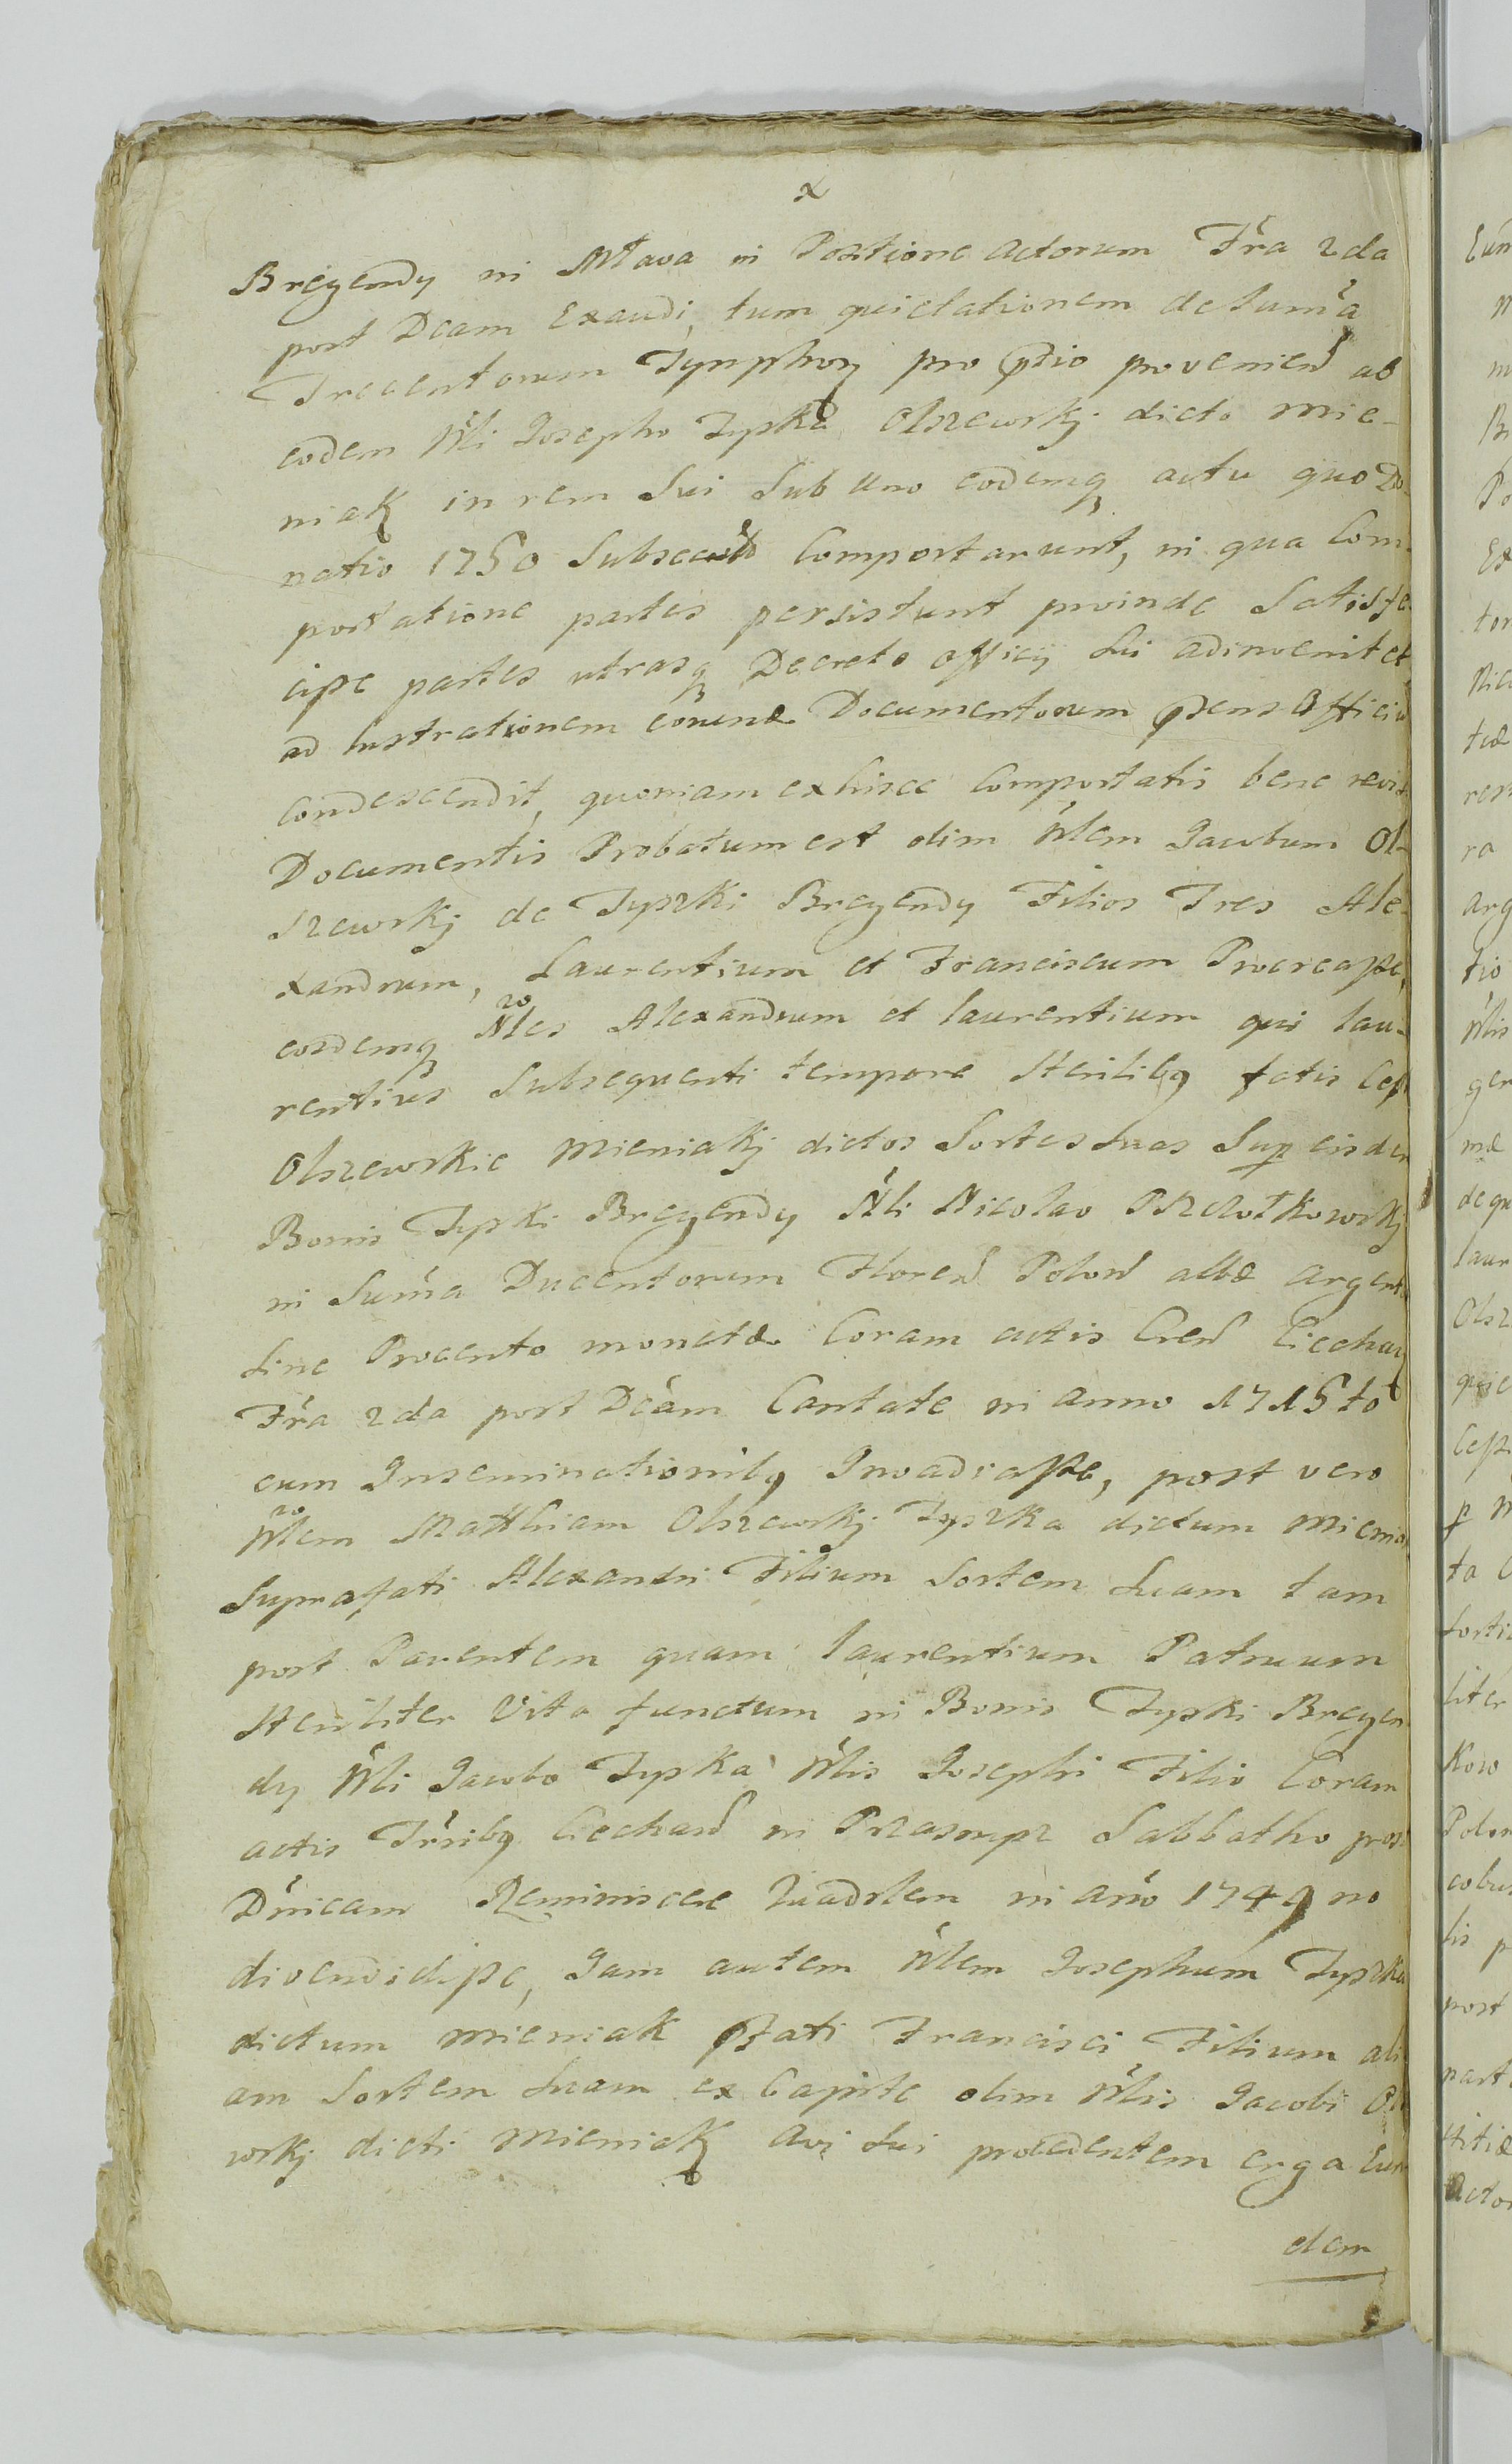 x
Bregendy in Mława in Positione Actorum Fra 2da
post Dcam Exaudi, tum quietationem de Suma
Trecentorum Tynphon pro ptio provenien ab
eodem Nli Josepho Tyska Olszewskj dicto Mie-
niak in rem Sui Sub Uno eodemq actu quo Do-
natio 1750 Subsecuto Comportarunt, in qua Com-
portatione partes persistunt proinde Satisfe-
cisse partes utrasq Decreto Officij Sui adinvenit et
ad lustrationem eorund Documentorum psens Officiu
condescendit, quoniam ex hisce Comportatis bene revis
Documentis Probatum est olim Nlem Jacobum Ol-
szewskj de Tyszki Bregendy Filios Tres Ale-
xandrum, Laurentium et Franciscum Procreasse,
eosdemq Nles Alexandrum et Laurentium qui Lau-
rentius Subsequenti tempore Sterilibq fatis Cess
Olszewskie Mieniakj dictos Sortes Suas Sup eisdem
Bonis Tyski Bregendy Nli Nicolao Pszczołkowskj
in Suma Ducentorum Floren Polon albæ argent
Sine Procento monetæ Coram actis Cren Ciechan
Fra 2da post Dcam Cantate in anno 1715to
cum Inseminationibq Invadiasse, post vero
Nlem Matthiam Olszewskj Tyszka dictum Mienia
Suprafati Alexandri Filium Sortem Suam tam
post Parentem quam Laurentium Patruum
Steriliter Vita functum in Bonis Tyski Bregen-
dy Nli Jacobo Tyska Nlis Josephi Filio Coram
actis Trribq Ciechan in Przasnysz Sabbatho post
Dnicam Reminiscere Quadrlem in ano 1749no
divendidisse, Jam autem Nlem Josephum Tyszka
dictum Mieniak pfati Francisci Filium ali-
am Sortem Suam ex Capite olim Nlis Jacobi Ol
wskj dicti Mieniak Avi Sui procedentem erga Eun
dem